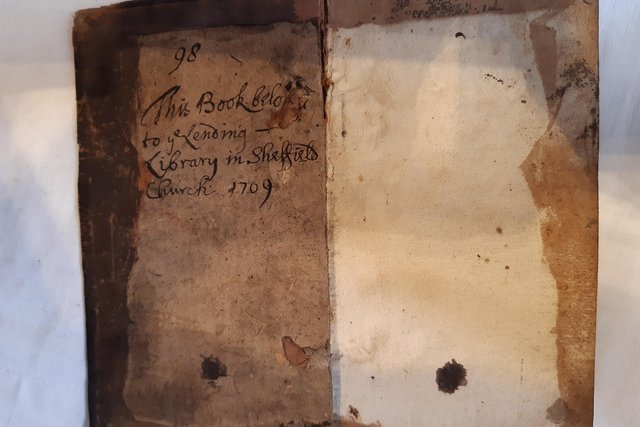 98
This Book belo
to yᵉ Lending
Library in Sheffield
Church 1709